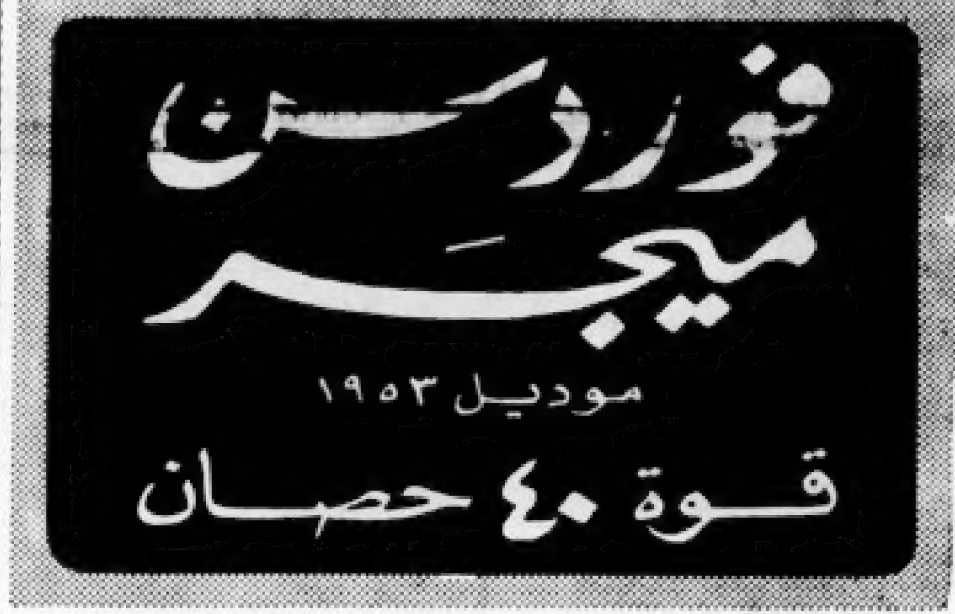 فوردسن
ميجَر
موديل ١٩٥٣
قوة ٤٠ حصان